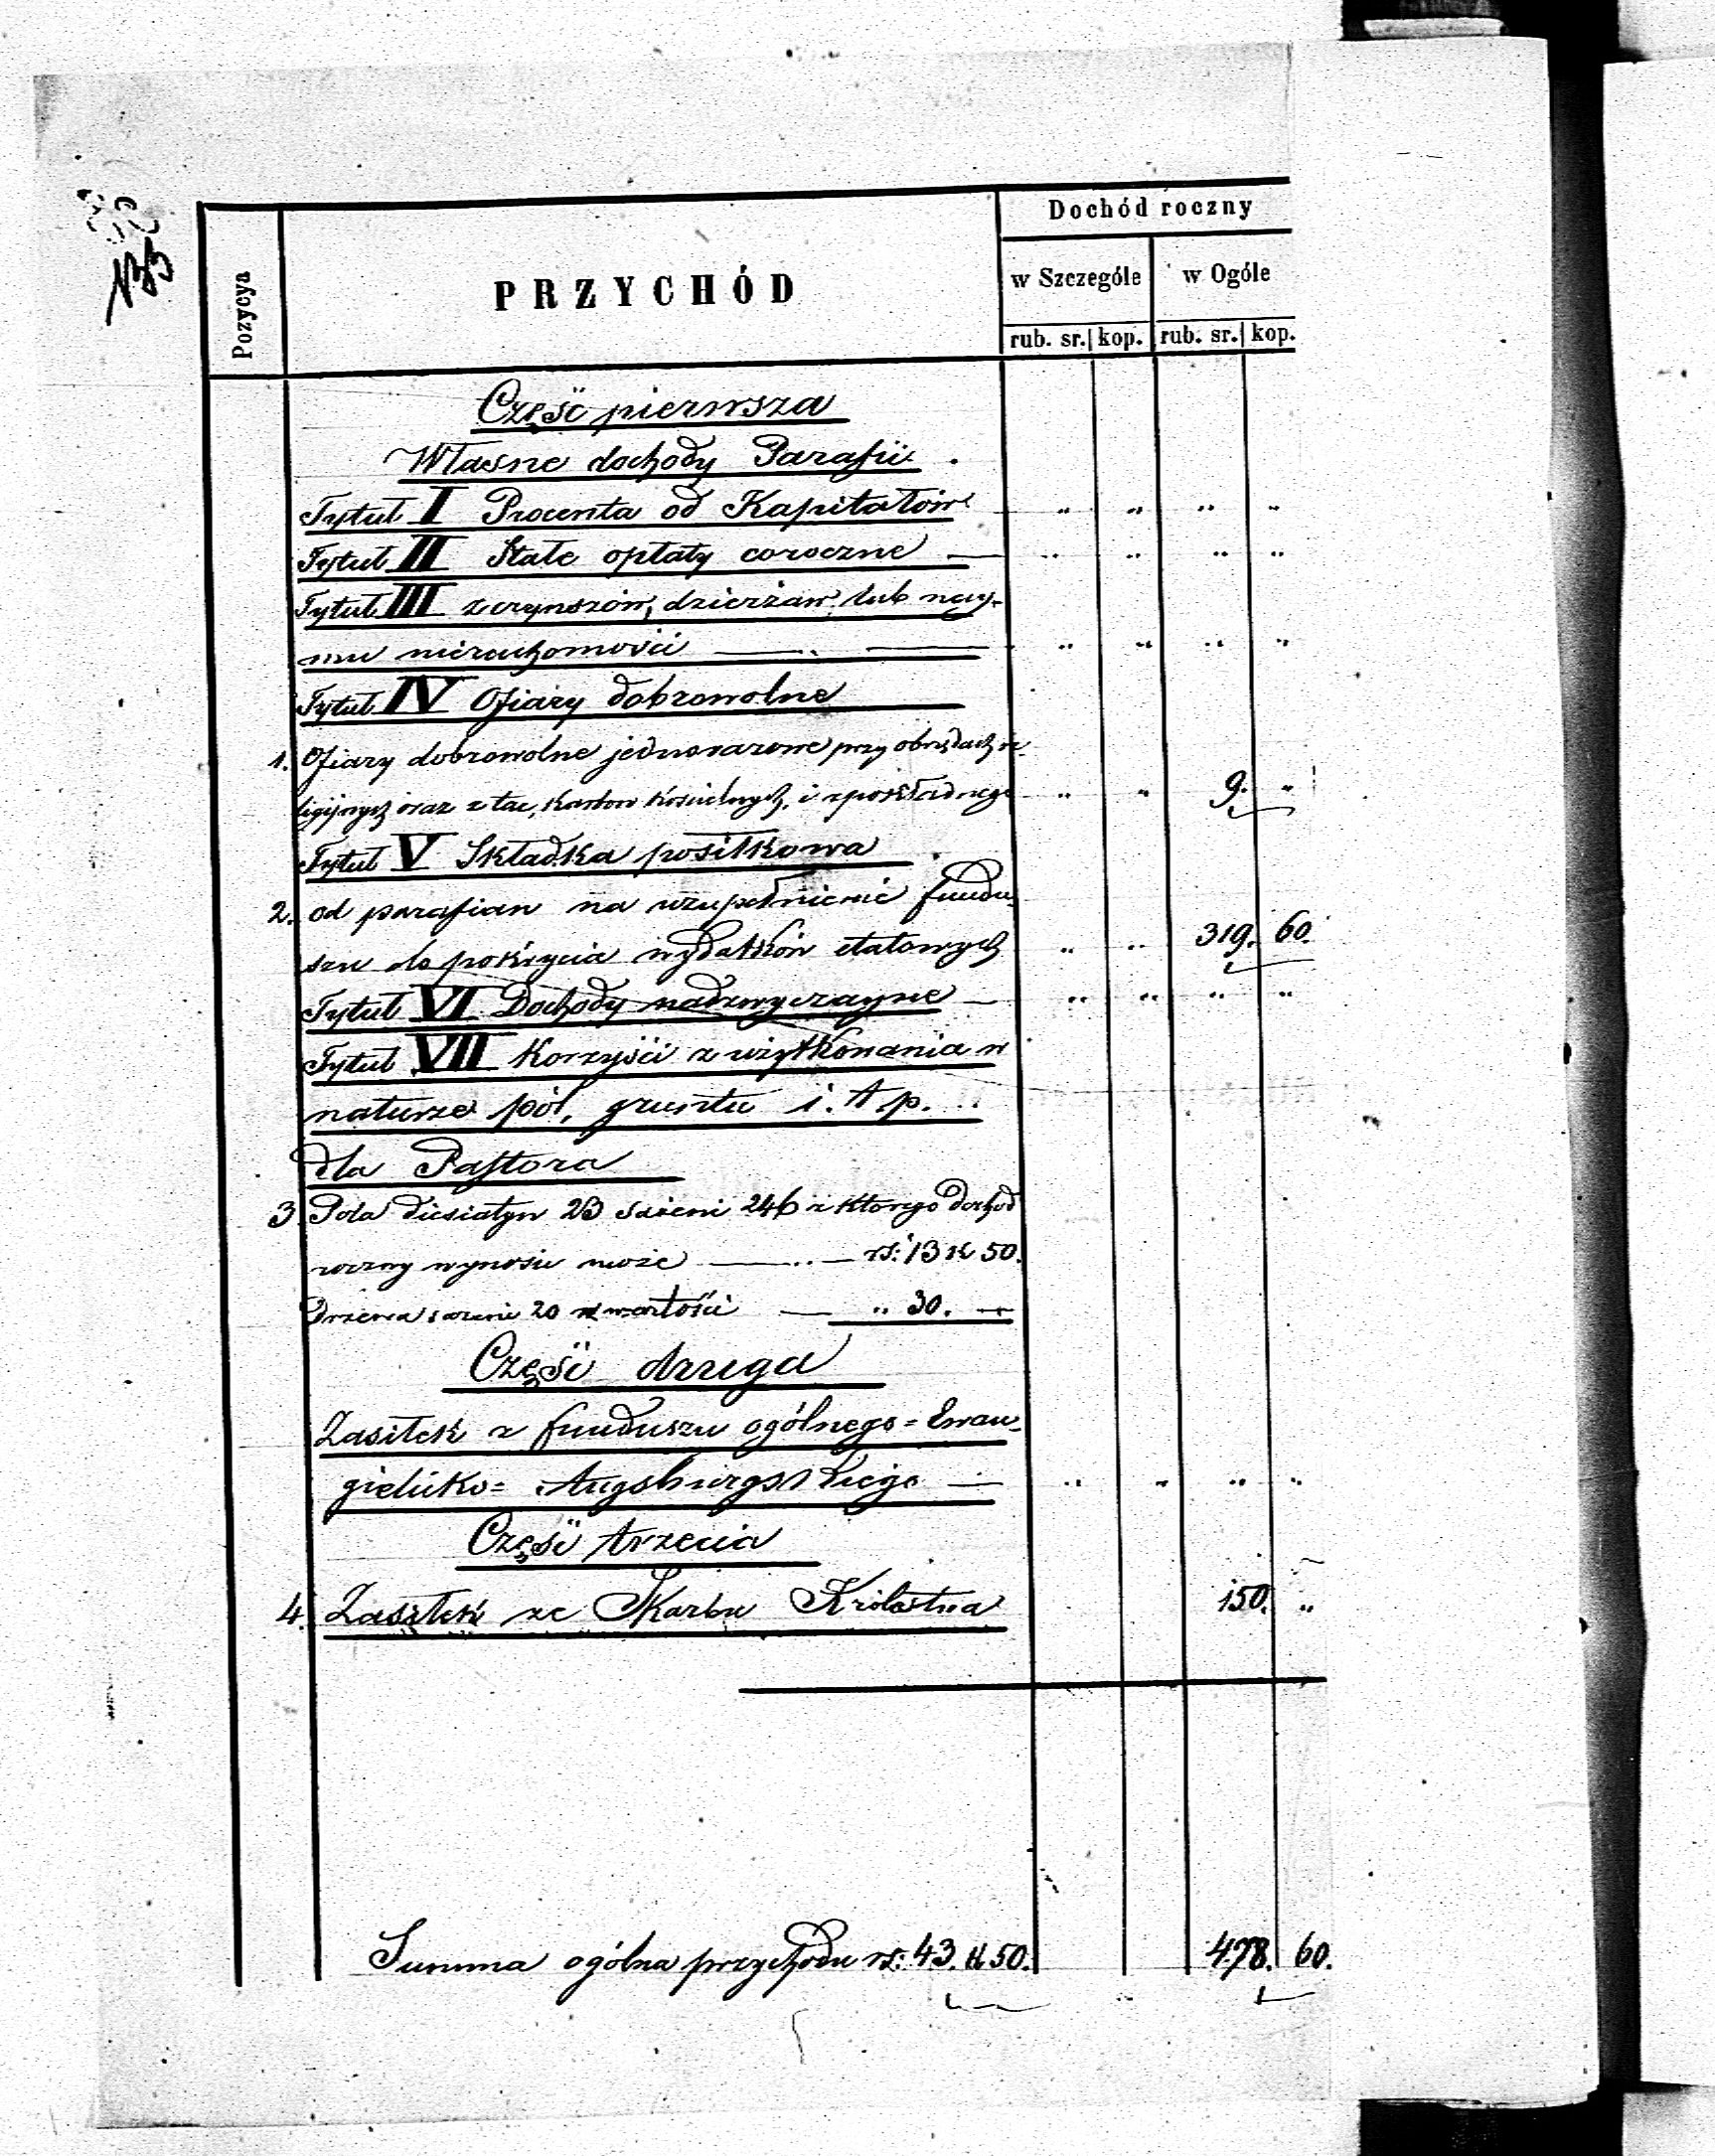 Dochód roczny
Pozycya
PRZYCHÓD
w Szczególe w Ogóle
rub. sr. kop. rub. sr. kop.
Częśc pierwsza
Własne dochody Parafii.
Tytuł I Procenta od Kapitałów " " " "
Tytuł II Stałe opłaty coroczne — " " " "
Tytuł III z czynszów, dzierżaw lub nay-
mu nieruchomości — " " " "
Tytuł IV Ofiary dobrowolne
1. Ofiary dobrowolne jednorazowe przy obrzędach re-
ligijnych oraz z tac, karbon kościelnych, i z pokładnego " " 9. "
Tytuł V Składka posiłkowa
2. od parafian na uzupełnienie fundu-
szu do pokrycia wydatków etatowych " " 319. 60.
Tytuł VI Dochody nadzwyczayne — " " " "
Tytuł VII Korzyści z użytkowania w
naturze pól, gruntu i. t. p.
dla Pastora
3. Pola diesiatyn 23 sażeni 246 z którego dochód
roczny wynosic może — rs: 13 k 50.
Drzewa sażeni 20 wartości — " 30. —
Częśc druga
Zasiłek z funduszu ogólnego = Ewan-
gielicko = Augsburgskiego — " " " "
Częśc trzecia
4. Zasiłek ze Skarbu Królestwa 150. "
Summa ogólna przychodu rs: 43. k 50. 478. 60.